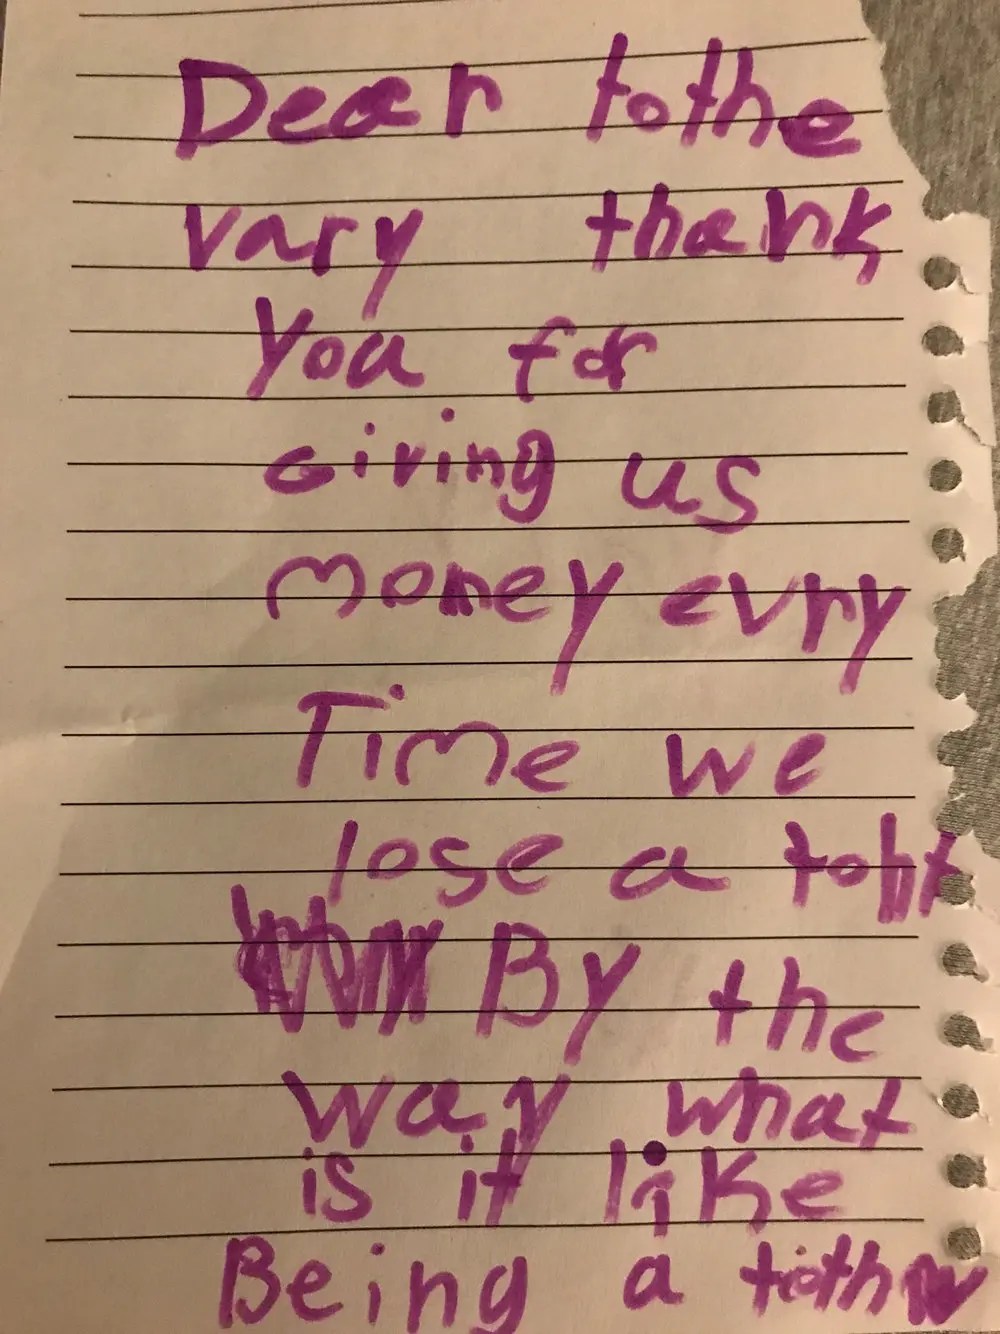 Dear tothe
vary thank
you for
Giving us
money evry
Time we
lose a toht
By the
way what
is it like
Being a tioth